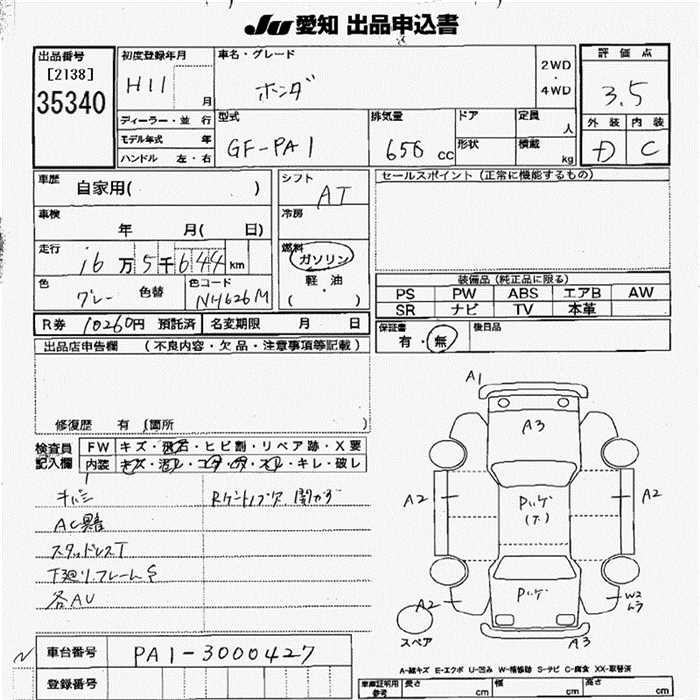 JU 愛知 出品申込書
出品番号
[2138]
35340
初度登録年月
H11 月
車名・グレード
ホンダ
2WD
・
4WD
評価点
3.5
ディーラー・並行
モデル年式 年
ハンドル 左・右
型式
GF-PA1
排気量
656 cc
ドア
形状
定員
人
積載
kg
外装 内装
D C
車歴 自家用( )
車検
年 月( 日)
走行
16万5千644km
色
グレー 色替
色コード
NH626M
シフト
AT
冷房
燃料
ガソリン
・
軽油
( )
セールスポイント (正常に機能するもの)
装備品 (純正品に限る)
PS PW ABS エアB AW
SR ナビ TV 本革
R券 10260円 預託済 名変期限 月 日
保証書
有・無
後日品
出品店申告欄 (不良内容・欠品・注意事項等記載)
修復歴 有 (箇所 )
検査員
記入欄
FW キズ・飛石・ヒビ割・リペア跡・X要
内装 キズ・汚レ・コゲ・穴・スレ・キレ・破レ
AC異音
スタッドレスT
下廻リ・フレームS
各AU
A1
A3
A2
A2
A2
W2
ムラ
A3
スペア
A-線キズ E-エクボ U-凹み W-補修跡 S-サビ C-腐食 XX-取替済
N
車台番号 PA1-3000427
登録番号
車庫証明用
参考
長さ cm 幅 cm 高さ cm